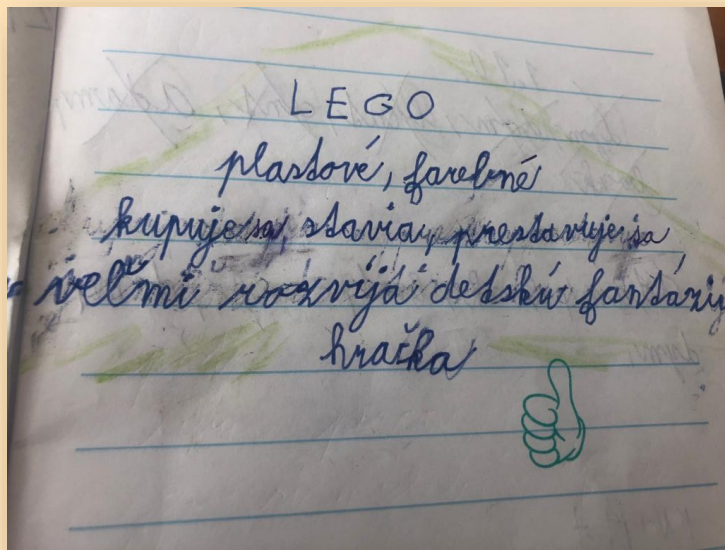 LEGO
plastové, farebné
kupuje sa, stavia, prestavuje sa
veľmi rozvíja detskú fantáziu
hračka